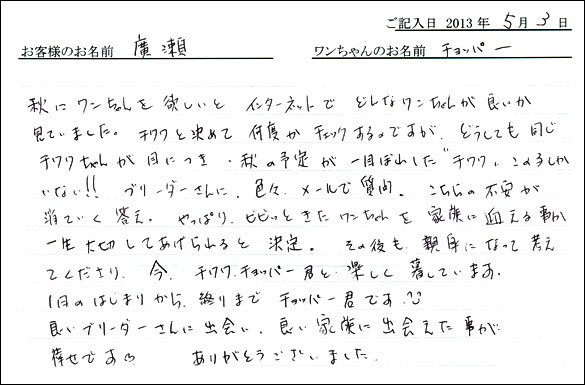 ご記入日 2013年 5月 3日
お客様のお名前 廣瀬 ワンちゃんのお名前 チョッパー
秋にワンちゃんを欲しいと インターネットで どんなワンちゃんが良いか
見ていました。チワワと決めて 何度かチェックするのですが、どうしても同じ
チワワちゃんが目につき、秋の予定が一目ぼれした"チワワ、この子しか
いない!! ブリーダーさんに、色々、メールで質問。こちらの不安が
消えていく答え。やっぱり、ビビッときたワンちゃんを家族に迎える事が
一生大切してあげられると決定。その後も、親身になって考え
てくださり、今、チワワ、チョッパー君と楽しく暮しています。
1日のはじまりから、終りまで チョッパー君です。
良いブリーダーさんに出会い、良い家族に出会えた事が
倖せです ありがとうございました。